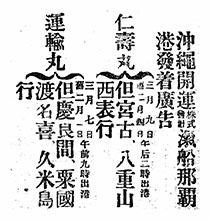 沖繩開運株式會社滊船那覇
港發着廣告
仁壽丸
三月九日
午后二時出港
但宮古、八重山
西表行
運輸丸
三月七日
午前九時出港
但慶良間、粟國
渡名喜、久米島
行